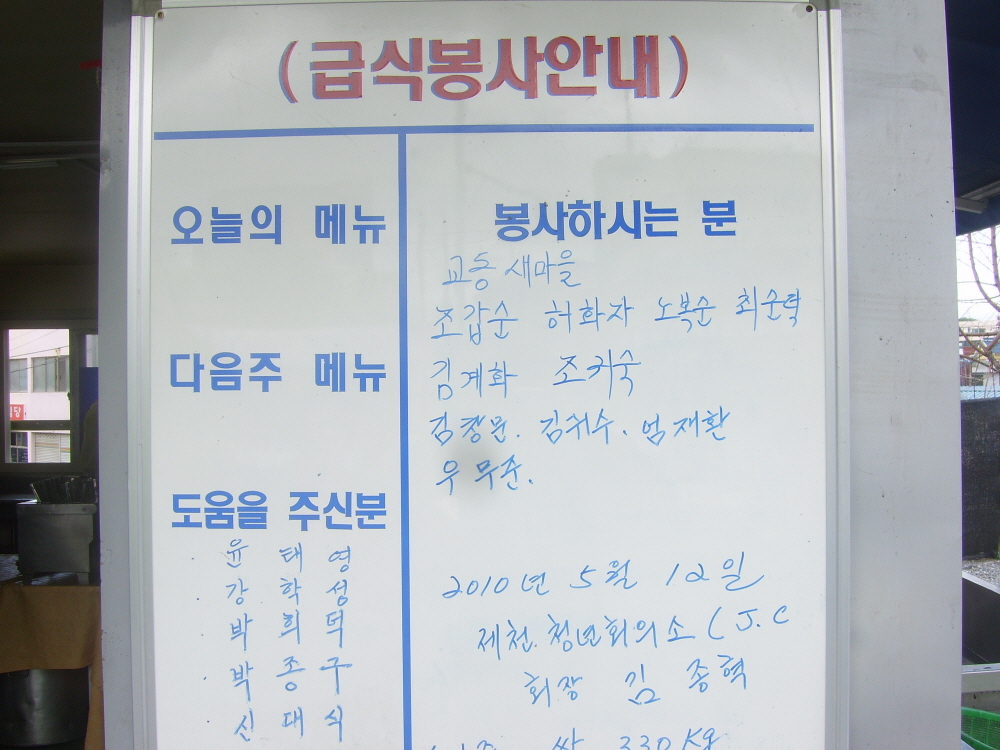 (급식봉사안내)
오늘의 메뉴
다음주 메뉴
도움을 주신분
윤 태 영
강 학 성
박 희 덕
박 종 구
신 대 식
봉사하시는 분
교동 새마을
조갑순 허화자 노복순 최순락
김계화 조커숙
김창문. 김쉬수. 엄재환
우무준.
2010년 5월 12일
제천.청년회의소 (J.C
회장 김 종혁
쌀 330Kg